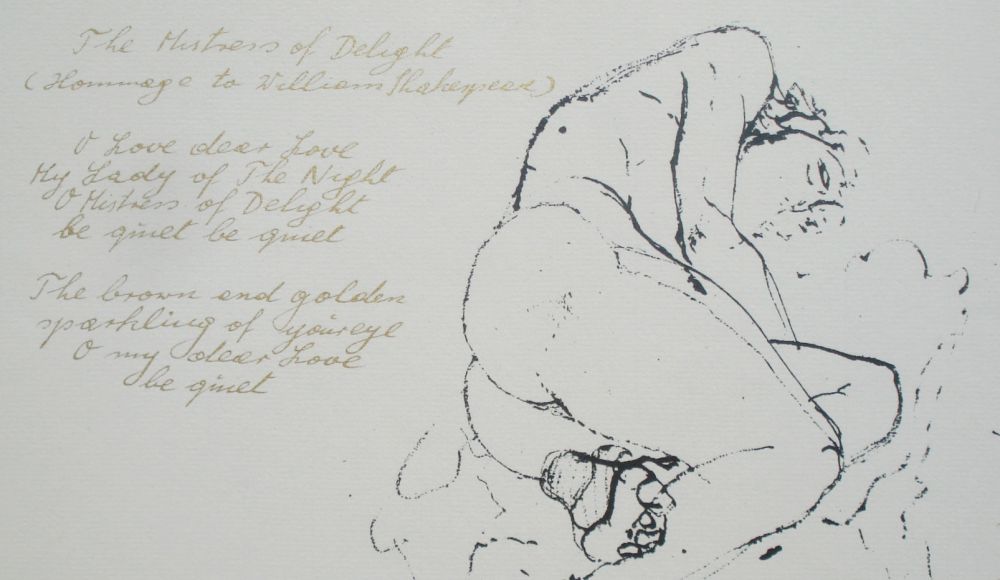 The Mistress of Delight
(Hommage to William Shakespear)
O Love dear Love
My Lady of The Night
O Mistress of Delight
be quiet be quiet
The brown and golden
sparkling of youreye
O my dear Love
be quiet